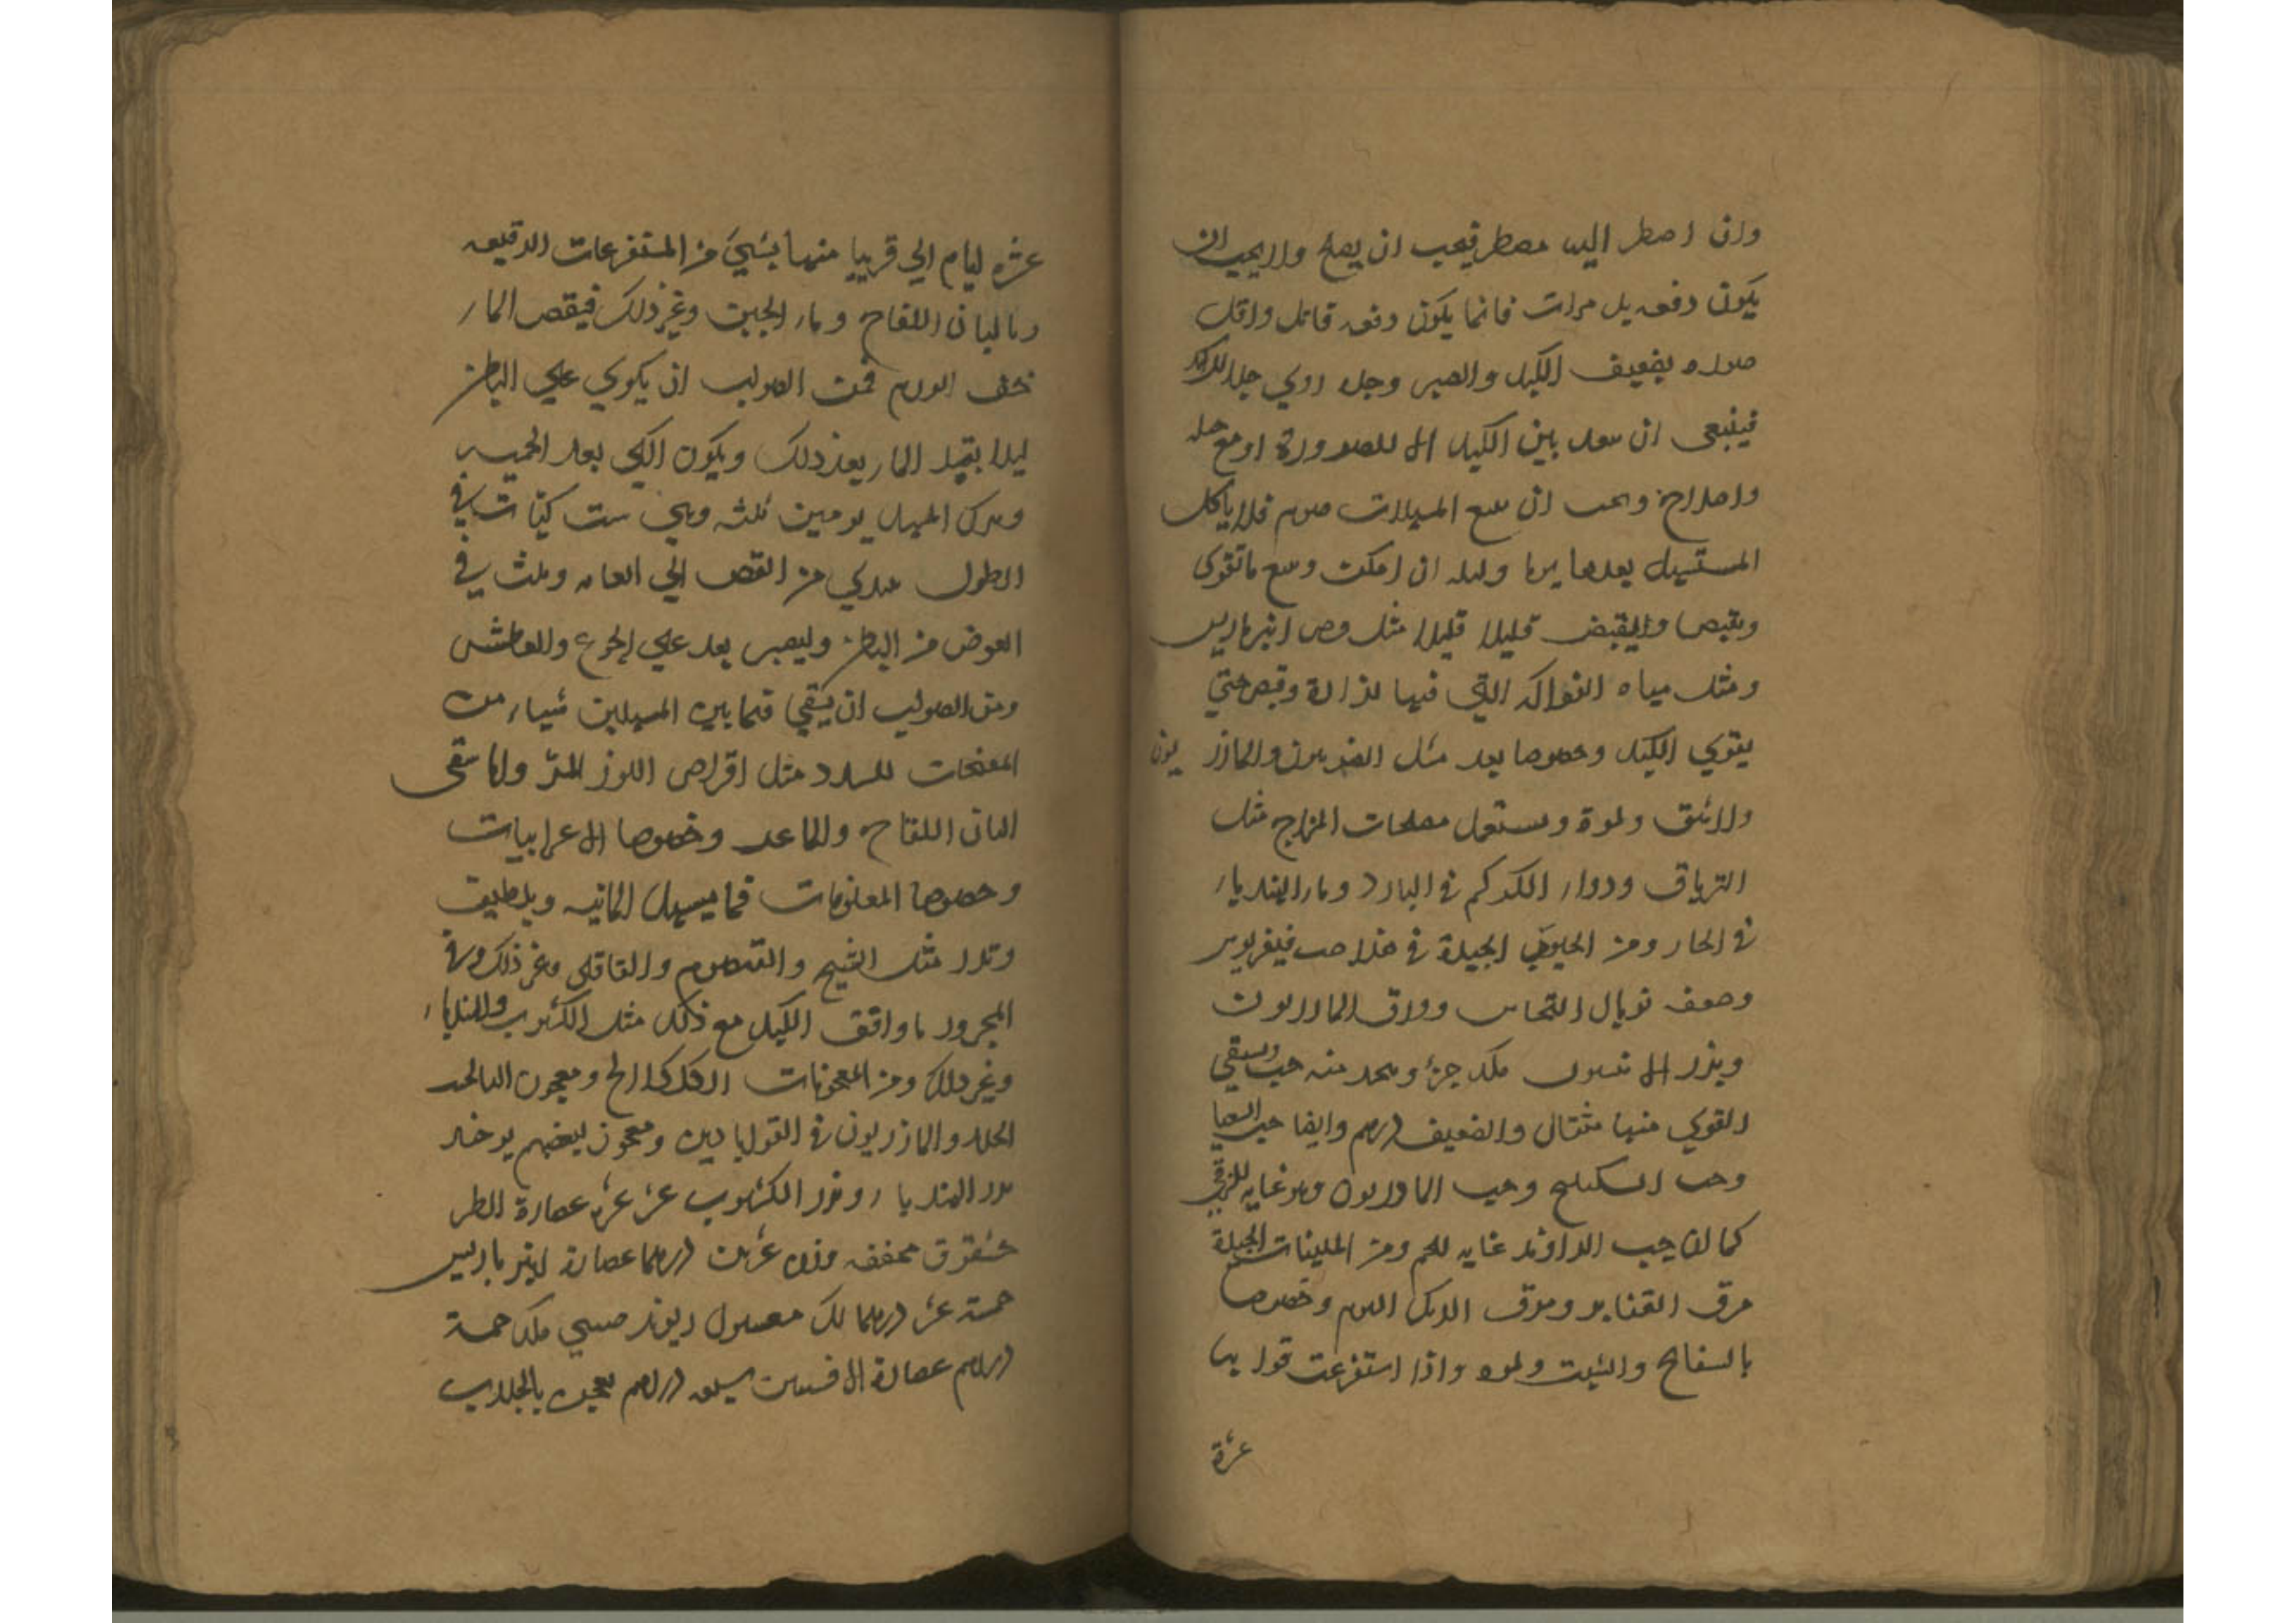 وان اضطر اليه مضطر فيجب ان يصلح والايجب ان
يكون دفعه بل مرات فانما يكون دفعه قاتل واقل
بضعيف الكبد والصبر وجده ردي جدا للكبد
فينبغي ان بين الكبد او مع
واصلاح ان المسهلات صوم فلا ياكل
المستسهل بعدها يوما وليله ان امكنت ما تقوى
ويقبض قليلا قليلا مثل انبرباريس
ومثل مياه الفواكه التي فيها لذاذة وقبض حتي
يقوي الكبد وخصوصا بعد مثل والمازر يون
والاشق ونحوه ويستعمل مصلحات المزاج مثل
الترياق ودواء الكركم في البارد وماء الهندباء
في الحار ومن الحبوب الجيدة في هذا حب فيلغريوس
وصفه توبال النحاس وورق المازريون
وبزر الانيسون مكد جزؤ ويتخذ منه حب ويسقي
القوي منها مثقال والضعيف درهم وايضا حب
وحب السكبينج وحب المازريون وهو غايه للزقي
كما ان حب الراوند غايه للحم ومن الملينات الجيدة
مرق القنابر ومرق الديك الهرم وخصوصا
بالسفايج والشبت ونحوه واذا استفرغت
عشرة
عشره ايام الي قريبا منها بشيء من المستفرغات الرقيقه
وبالبان اللقاح وماء الجبن وغير ذلك فنقص الماء
خف الورم فمن الصواب ان يكوي علي البطن
ليلا يقبل الماء بعد ذلك ويكون الكي بعد الحميه
وترك المسهل يومين ثلثه وهي ست كيات في
الطول يبتدي من القص الي العانه وثلث في
العرض من البطن وليصبر بعد علي الجوع والعطش
ومن الصواب ان يسقي فيما بين المسهلين شياء من
المفتحات للسدد مثل اقراص اللوز المر واما سقي
البان اللقاح والماعز وخصوصا الاعرابيات
وخصوصا المعلوفات فما يسهل المائيه ويلطف
وتدر مثل الشيح والقيصوم والقاقلي وغير ذلك وفي
المحرور ما وافق الكبد مع ذلك مثل الكشوث والهندباء
وغير ذلك ومن المعجونات الكلكلانج ومعجون
والمازريون في القراباديون ومعجون لبعضهم يوخذ
بزر الهندباء وبزر الكشوث عشر عشره عصارة الطر
خشقوق مجففه وزن عشرين درهما عصارة انبرباريس
خمسة عشر درهما لك مغسول ريوند صيني مكد خمسة
دراهم عصارة الافسنتين سبعه دراهم يعجن بالجلاب